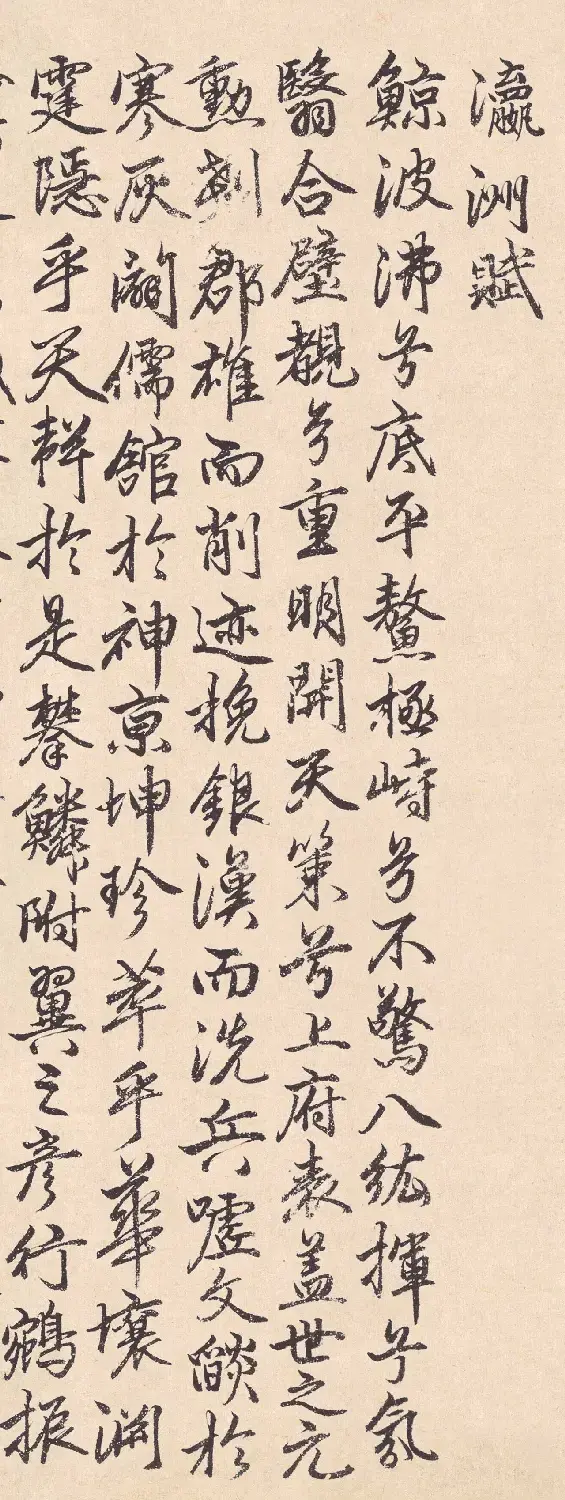 瀛洲賦
鯨波沸兮底平鰲極峙兮不驚八紘揮兮氛
翳合璧覩兮重明開天策兮上府表盖世之元
勳剗郡雄而削迹挽銀漢而洗兵嘘文燄於
寒灰闢儒館於神京坤珍萃乎華壤淵
霆隱乎天耕於是攀鱗附翼之彦行鵷振